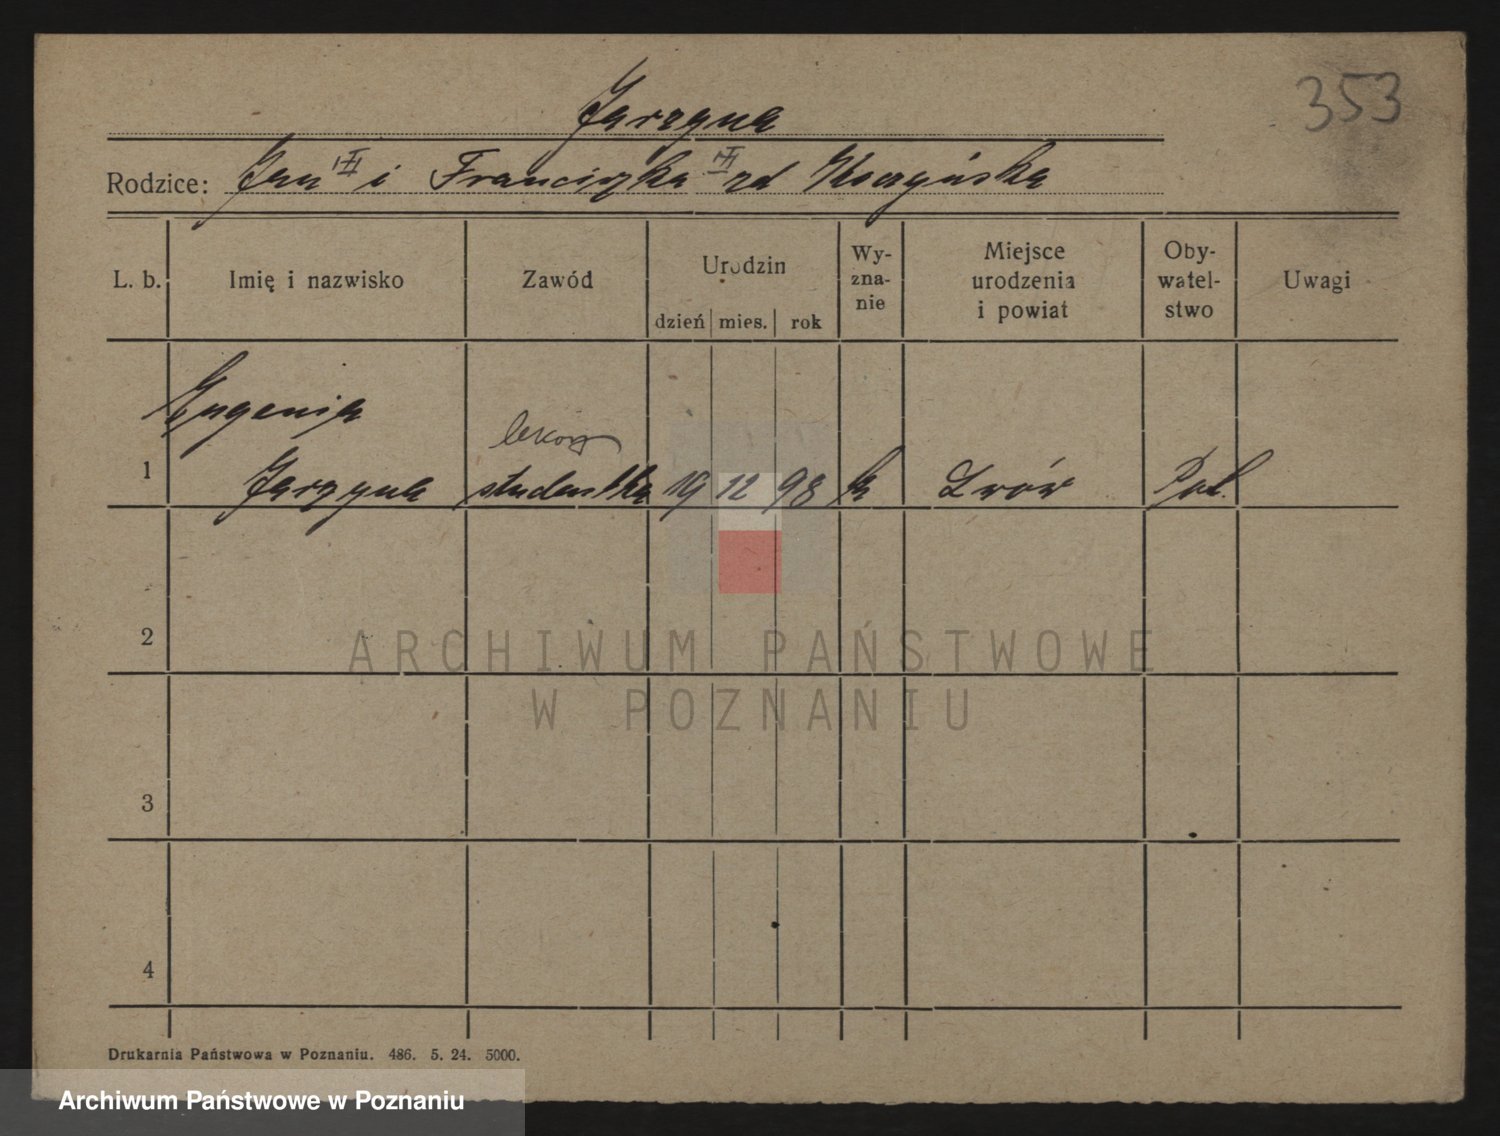 353
Jarzyna
Rodzice: Jan i Franciszka zd
L. b. Imię i nazwisko Zawód Urodzin dzień mies. rok Wy-zna-nie Miejsce urodzenia i powiat Oby-watel-stwo Uwagi
Eugenja
lekarz
1 Jarzyna studentka 19 12 98 k Lwów Pol.
2
ARCHIWUM PAŃSTWOWE
W POZNANIU
3
4
Drukarnia Państwowa w Poznaniu. 486. 5. 24. 5000.
Archiwum Państwowe w Poznaniu